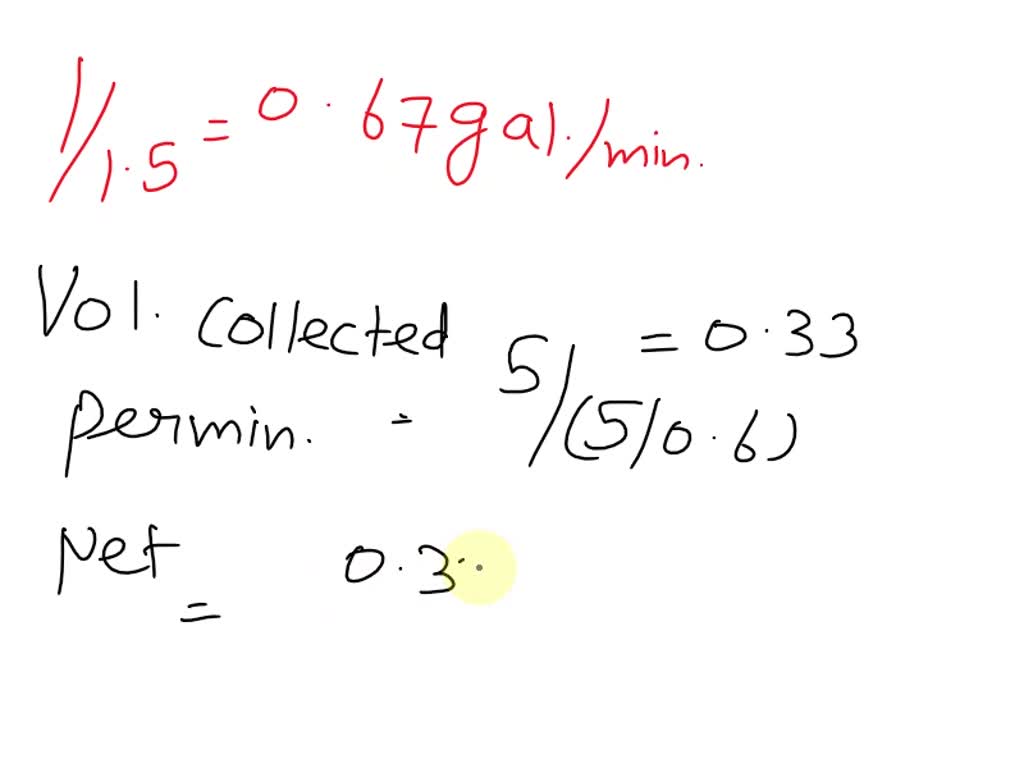 1/1.5 = 0.67 gal./min.
Vol. collected
per min. = 5/(5/0.6) = 0.33
Net = 0.3